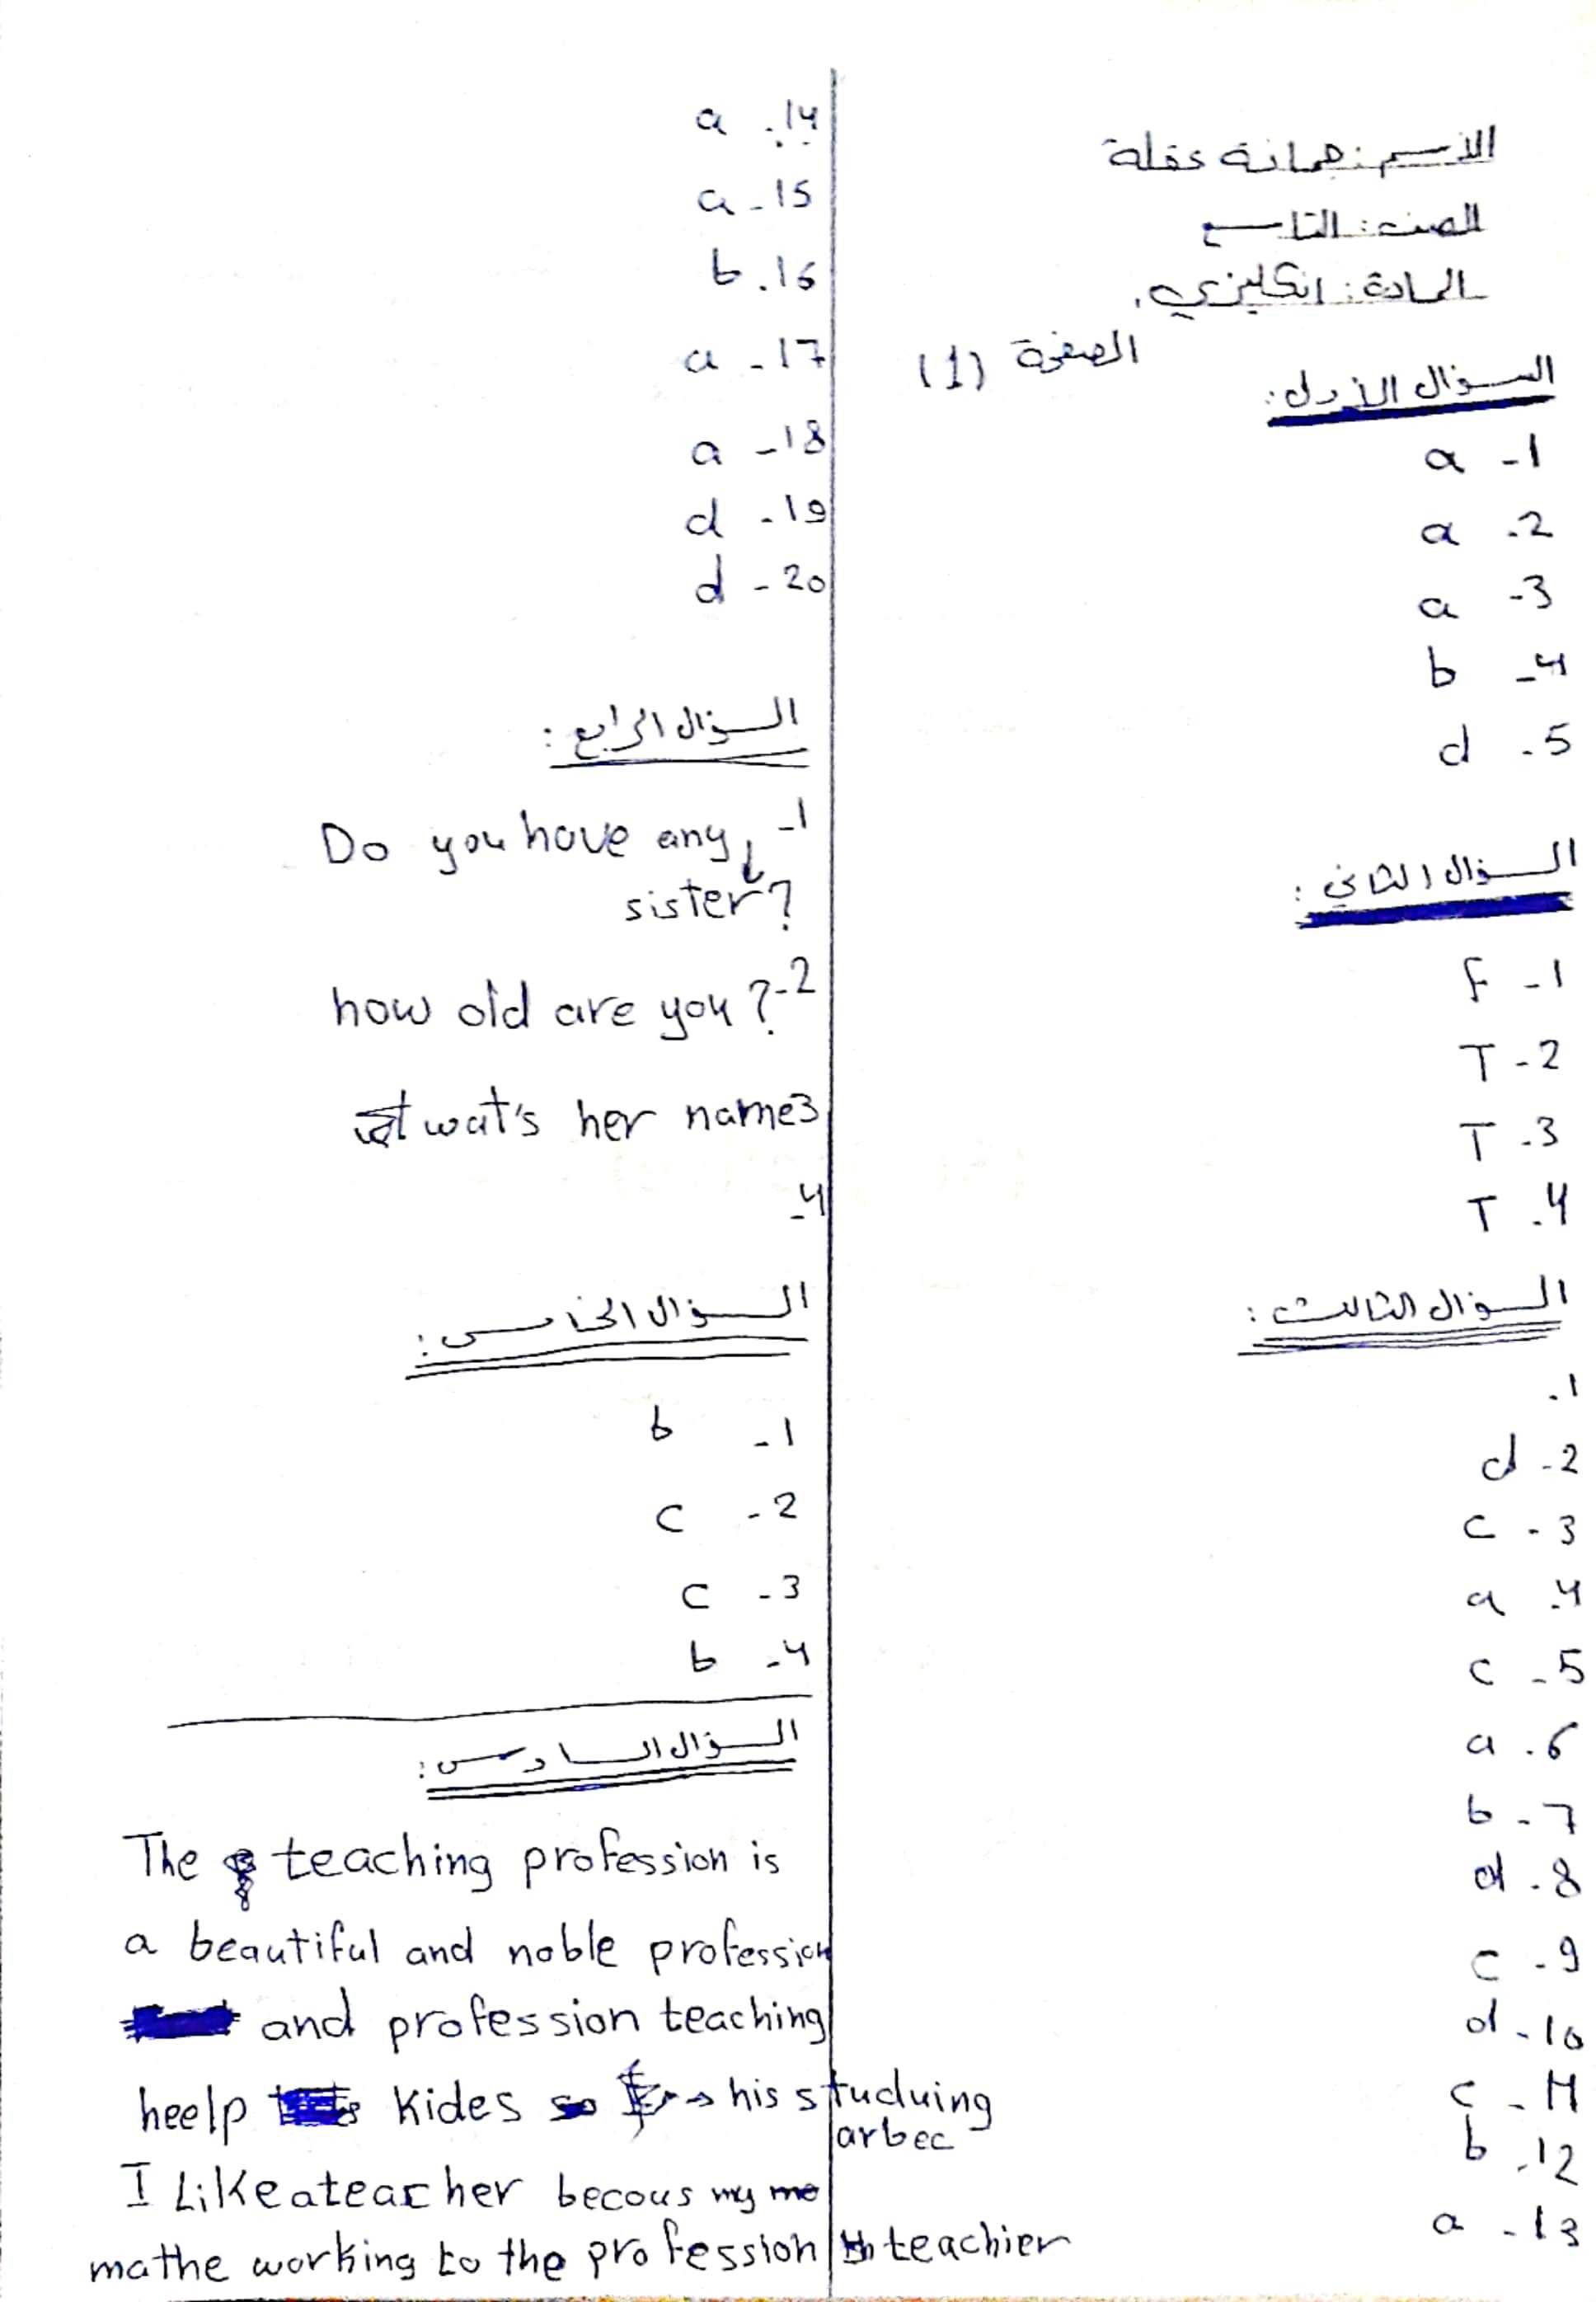 الاسم: جمانة عقلة
الصف: التاسع
المادة: انكليزي.
الصفحة (1)
السؤال الأول:
1- a
2- a
3- a
4- b
5- d
السؤال الثاني:
1- F
2- T
3- T
4- T
السؤال الثالث:
1-
2- d
3- c
4- a
5- c
6- a
7- b
8- d
9- c
10- d
11- c
12- b
13- a
14- a
15- a
16- b
17- a
18- a
19- d
20- d
السؤال الرابع:
1- Do you have any
sister?
2- how old are you?
3 wat's her name
4-
السؤال الخامس:
1- b
2- c
3- c
4- b
السؤال السادس:
The teaching profession is
a beautiful and noble profession
and profession teaching
heelp Kides his studuing
arbec
I Like a teacher becous my
mathe working to the profession teachier